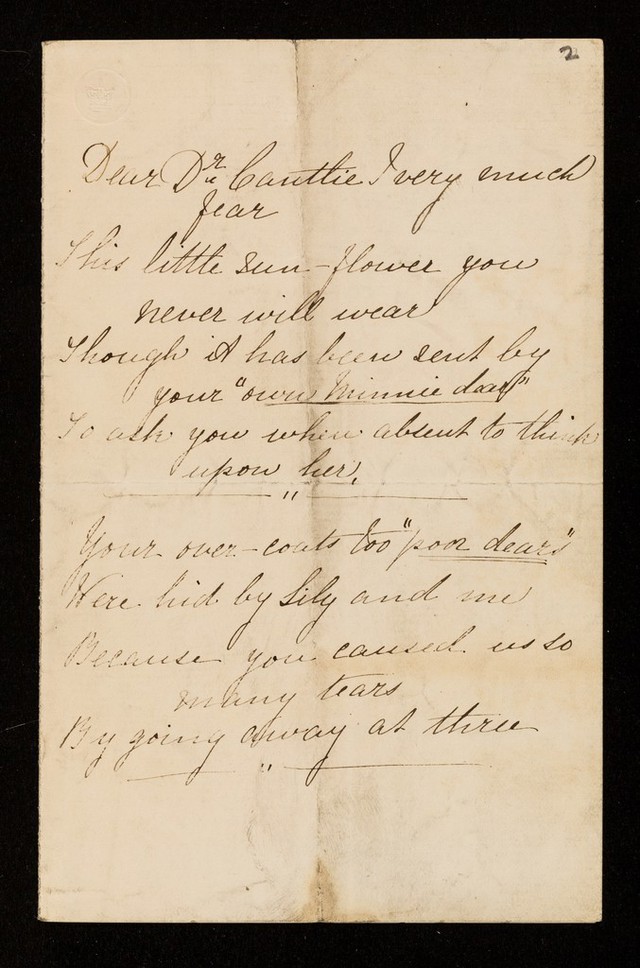 2
Dear Dr Cantlie I very much
fear
This little sun-flower you
never will wear
Though it has been sent by
your "own Minnie dear"
To ask you when absent to think
upon her,
"
Your over-coats too "poor dears"
Were hid by Lily and me
Because you caused us so
many tears
By going away at three
"